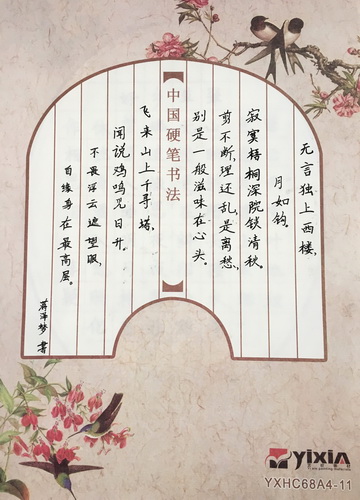 无言独上西楼，
月如钩。
寂寞梧桐深院锁清秋。
剪不断，理还乱，是离愁，
别是一般滋味在心头。
中国硬笔书法
飞来山上千寻塔，
闻说鸡鸣见日升。
不畏浮云遮望眼，
自缘身在最高层。
蒋泽梦 書
yixin
YXHC68A4-11